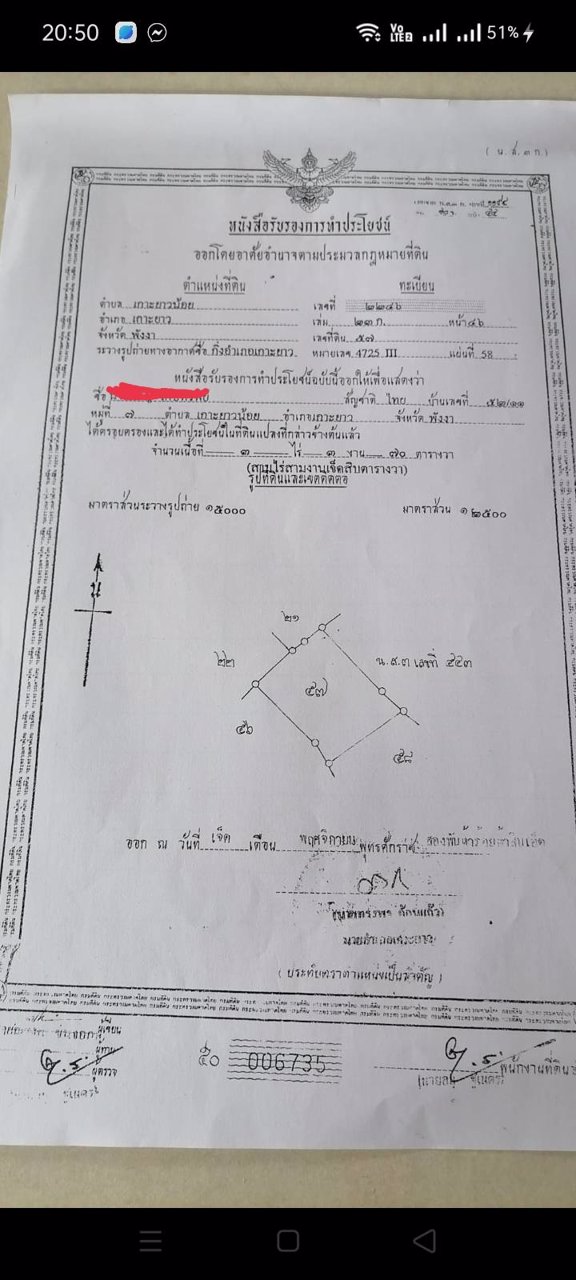 20:50
51%
( น.ส.๓ ก.)
หนังสือรับรองการทำประโยชน์
ออกโดยอาศัยอำนาจตามประมวลกฎหมายที่ดิน
ตำแหน่งที่ดิน ทะเบียน
ตำบล เกาะยาวน้อย เลขที่ ๒๒๔๖
อำเภอ เกาะยาว เล่ม ๒๓ ก. หน้า ๔๖
จังหวัด พังงา เลขที่ดิน ๕๗
ระวางรูปถ่ายทางอากาศชื่อ กิ่งอำเภอเกาะยาว หมายเลข 4725 III แผ่นที่ 58
หนังสือรับรองการทำประโยชน์ฉบับนี้ออกให้เพื่อแสดงว่า
ชื่อ สัญชาติ ไทย บ้านเลขที่ ๕๒/๑๑
หมู่ที่ ๗ ตำบล เกาะยาวน้อย อำเภอเกาะยาว จังหวัด พังงา
ได้ครอบครองและได้ทำประโยชน์ในที่ดินแปลงที่กล่าวข้างต้นแล้ว
จำนวนเนื้อที่ ๓ ไร่ ๓ งาน ๗๐ ตารางวา
(สามไร่สามงานเจ็ดสิบตารางวา)
รูปที่ดินและเขตติดต่อ
มาตราส่วนระวางรูปถ่าย ๑:๕๐๐๐ มาตราส่วน ๑:๒๕๐๐
น
๒๑
๒๒ น.ส.๓ เลขที่ ๔๕๓
๕๗
๕๖
๕๘
ออก ณ วันที่ เจ็ด เดือน พฤศจิกายน พุทธศักราช
นายอำเภอเกาะยาว
( ประทับตราตำแหน่งเป็นสำคัญ )
ผู้เขียน
ผู้ทาน
ผู้ตรวจ
๕๐ 006735
พนักงานที่ดิน